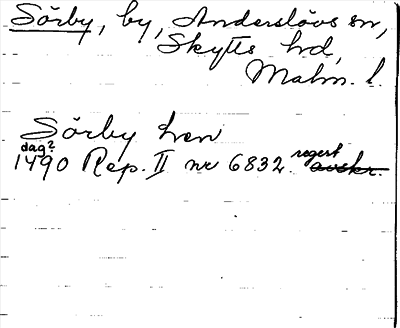 Sörby, by, Anderslövs sn,
Skytts hd,
Malm. l.
Sörby hen
dag?
1490 Rep. II nr 6832 regest avskr.